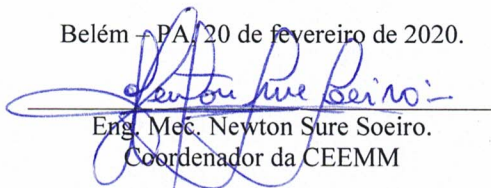 Belém – PA, 20 de fevereiro de 2020.
Newton Sure Soeiro
Eng. Mec. Newton Sure Soeiro.
Coordenador da CEEMM